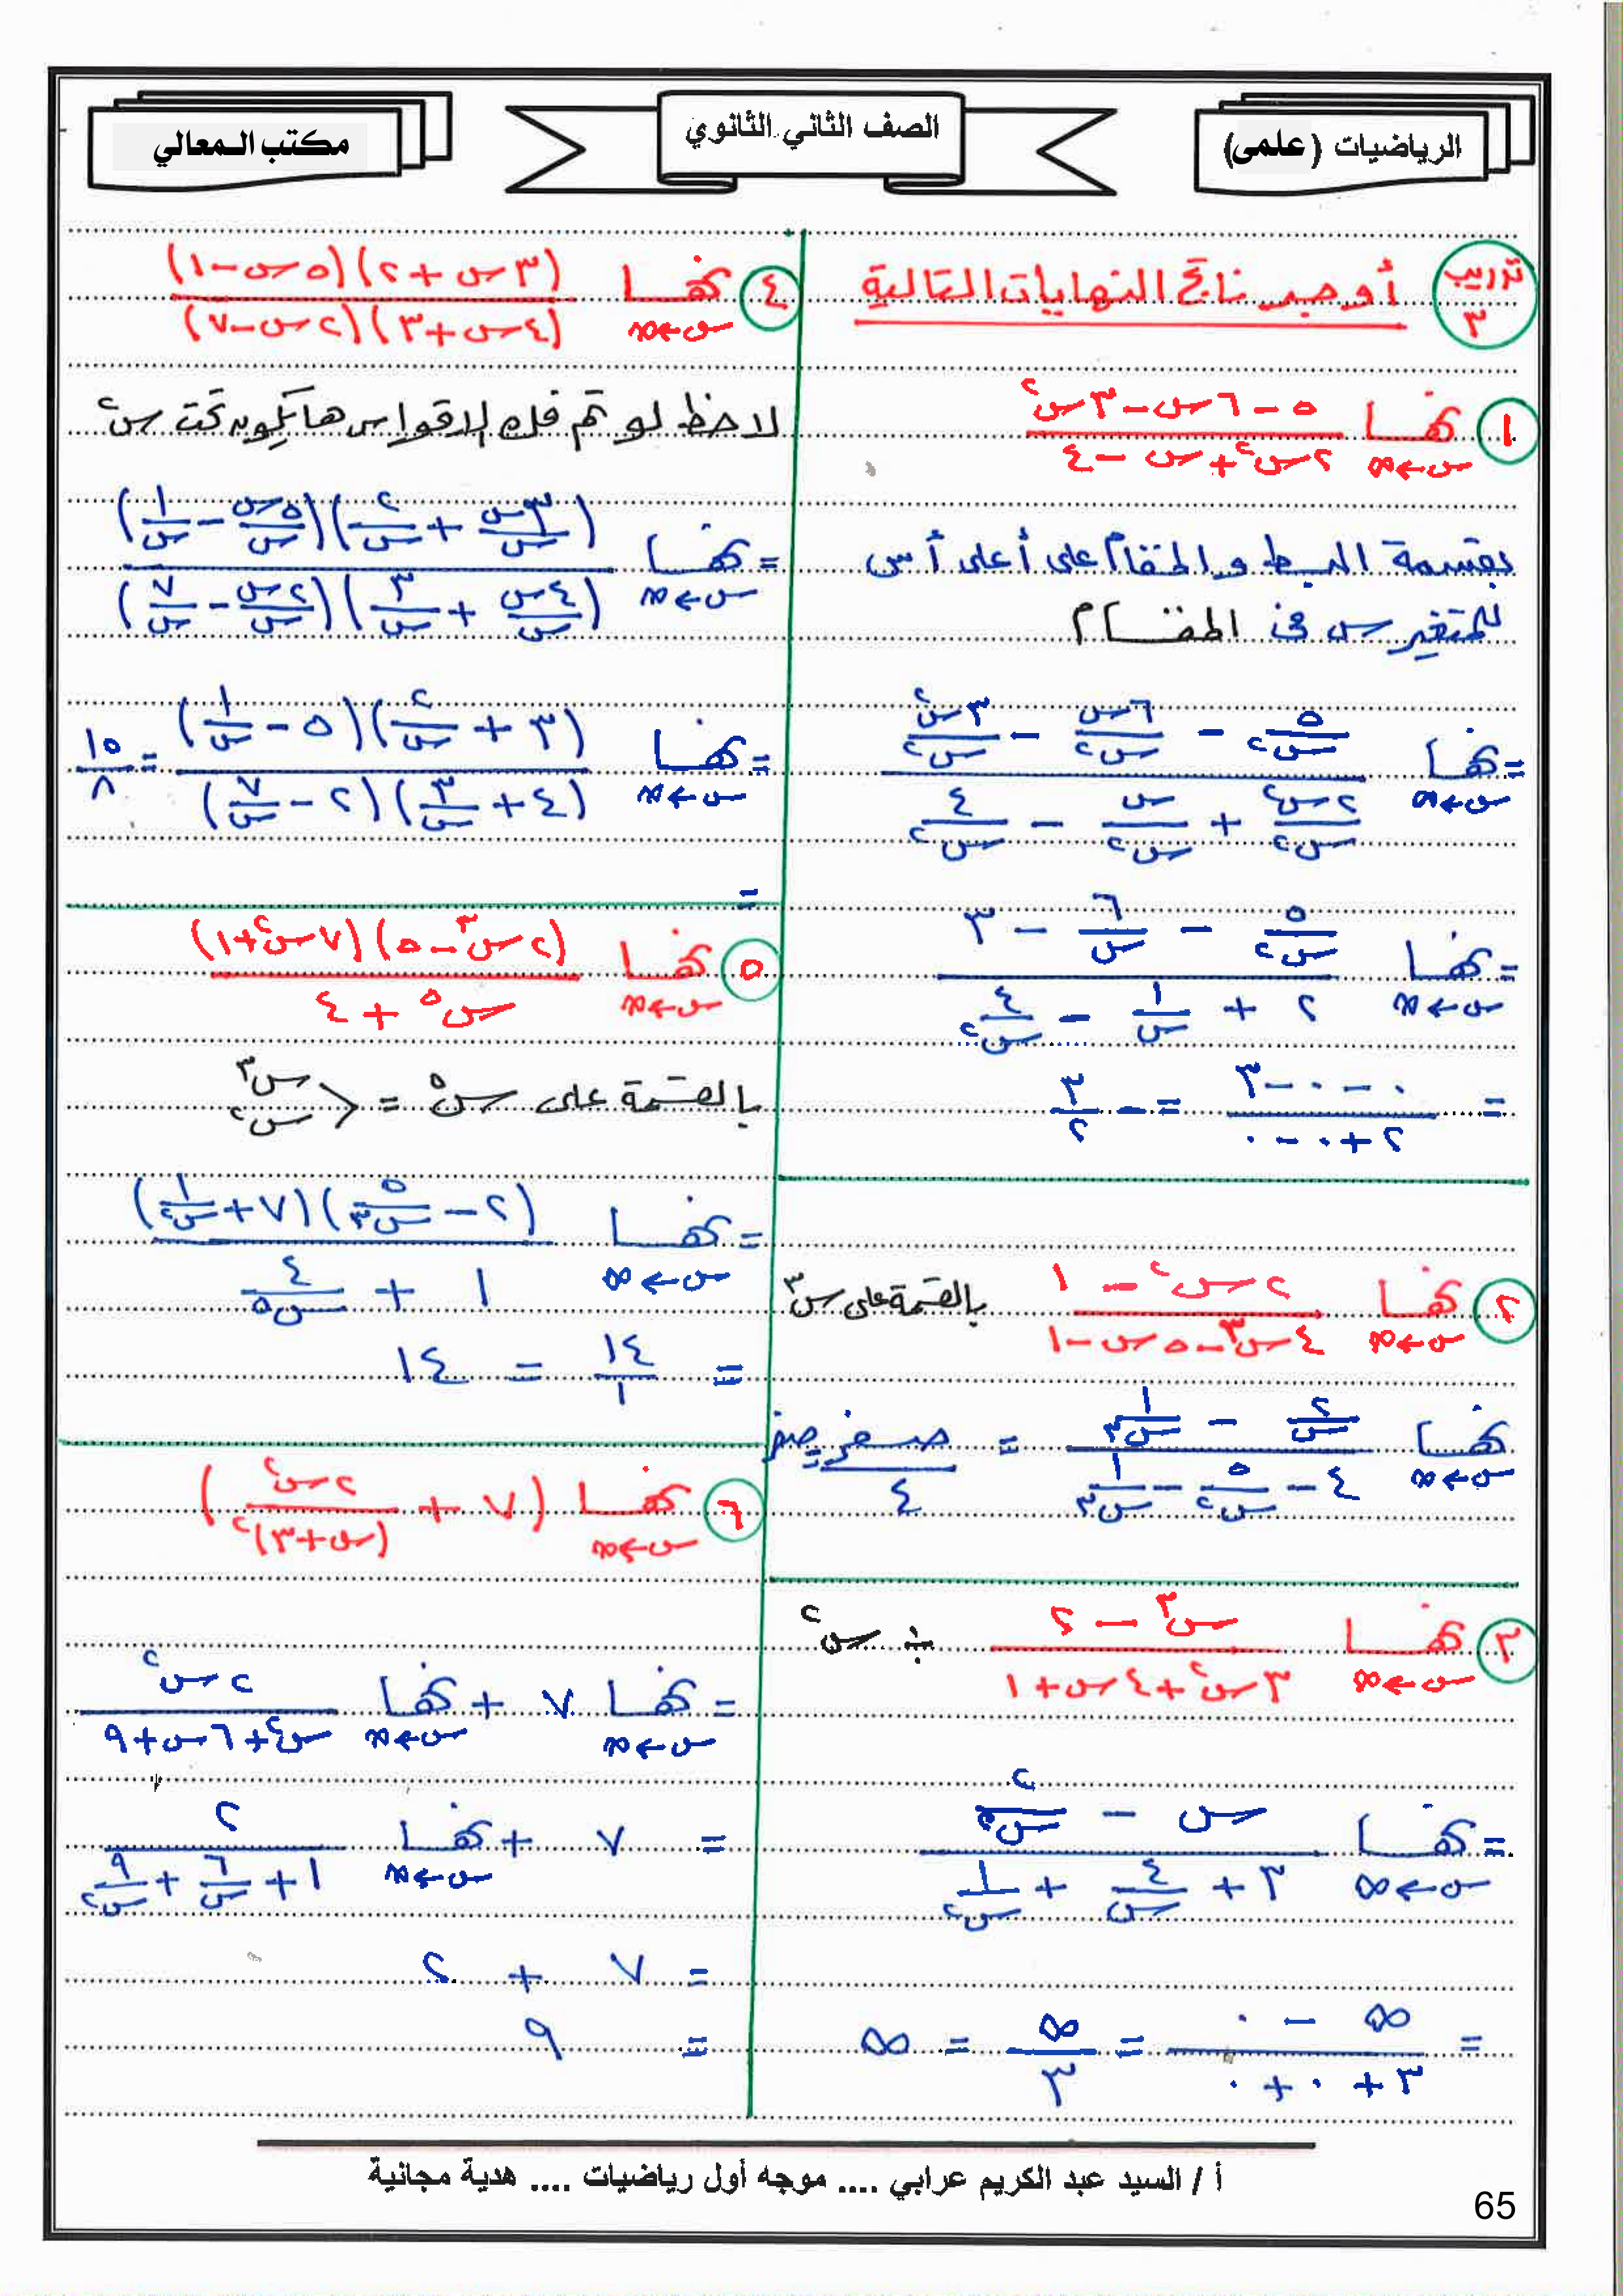 الرياضيات (علمى)
الصف الثاني الثانوي
مكتب المعالي
تدريب ٣
أوجد ناتج النهايات التالية
١ نهــا س←∞ (٥ - ٦س - ٣س٢) / (٢س٢ + س - ٤)
بقسمة البسط والمقام على أعلى أس
للمتغير س فى المقــام
= نهــا س←∞ (٥/س٢ - ٦س/س٢ - ٣س٢/س٢) / (٢س٢/س٢ + س/س٢ - ٤/س٢)
= نهــا س←∞ (٥/س٢ - ٦/س - ٣) / (٢ + ١/س - ٤/س٢)
= (٠ - ٠ - ٣) / (٢ + ٠ - ٠) = - ٣/٢
٢ نهــا س←∞ (٢س٢ - ١) / (٤س٣ - ٥س - ١) بالقسمة على س٣
نهــا س←∞ (٢/س - ١/س٣) / (٤ - ٥/س٢ - ١/س٣) = صفر/٤ = صفر
٣ نهــا س←∞ (س٣ - ٢) / (٣س٢ + ٤س + ١) ÷ س٢
= نهــا س←∞ (س - ٢/س٢) / (٣ + ٤/س + ١/س٢)
= (∞ - ٠) / (٣ + ٠ + ٠) = ∞/٣ = ∞
٤ نهــا س←∞ (٣س + ٢)(٥س - ١) / (٤س + ٣)(٢س - ٧)
لاحظ لو تم فك الاقواس هايكون تحت س٢
= نهــا س←∞ (٣س/س + ٢/س)(٥س/س - ١/س) / (٤س/س + ٣/س)(٢س/س - ٧/س)
= نهــا س←∞ (٣ + ٢/س)(٥ - ١/س) / (٤ + ٣/س)(٢ - ٧/س) = ١٥/٨
=
٥ نهــا س←∞ (٢س٣ - ٥)(٧س٢ + ١) / (س٥ + ٤)
بالقسمة على س٥ = < س٣ س٢
= نهــا س←∞ (٢ - ٥/س٣)(٧ + ١/س٢) / (١ + ٤/س٥)
= ١٤/١ = ١٤
٦ نهــا س←∞ (٧ + ٢س٢/(س+٣)٢)
= نهــا س←∞ ٧ + نهــا س←∞ ٢س٢ / (س٢ + ٦س + ٩)
= ٧ + نهــا س←∞ ٢ / (١ + ٦/س + ٩/س٢)
= ٧ + ٢
= ٩
أ / السيد عبد الكريم عرابي .... موجه أول رياضيات .... هدية مجانية
65